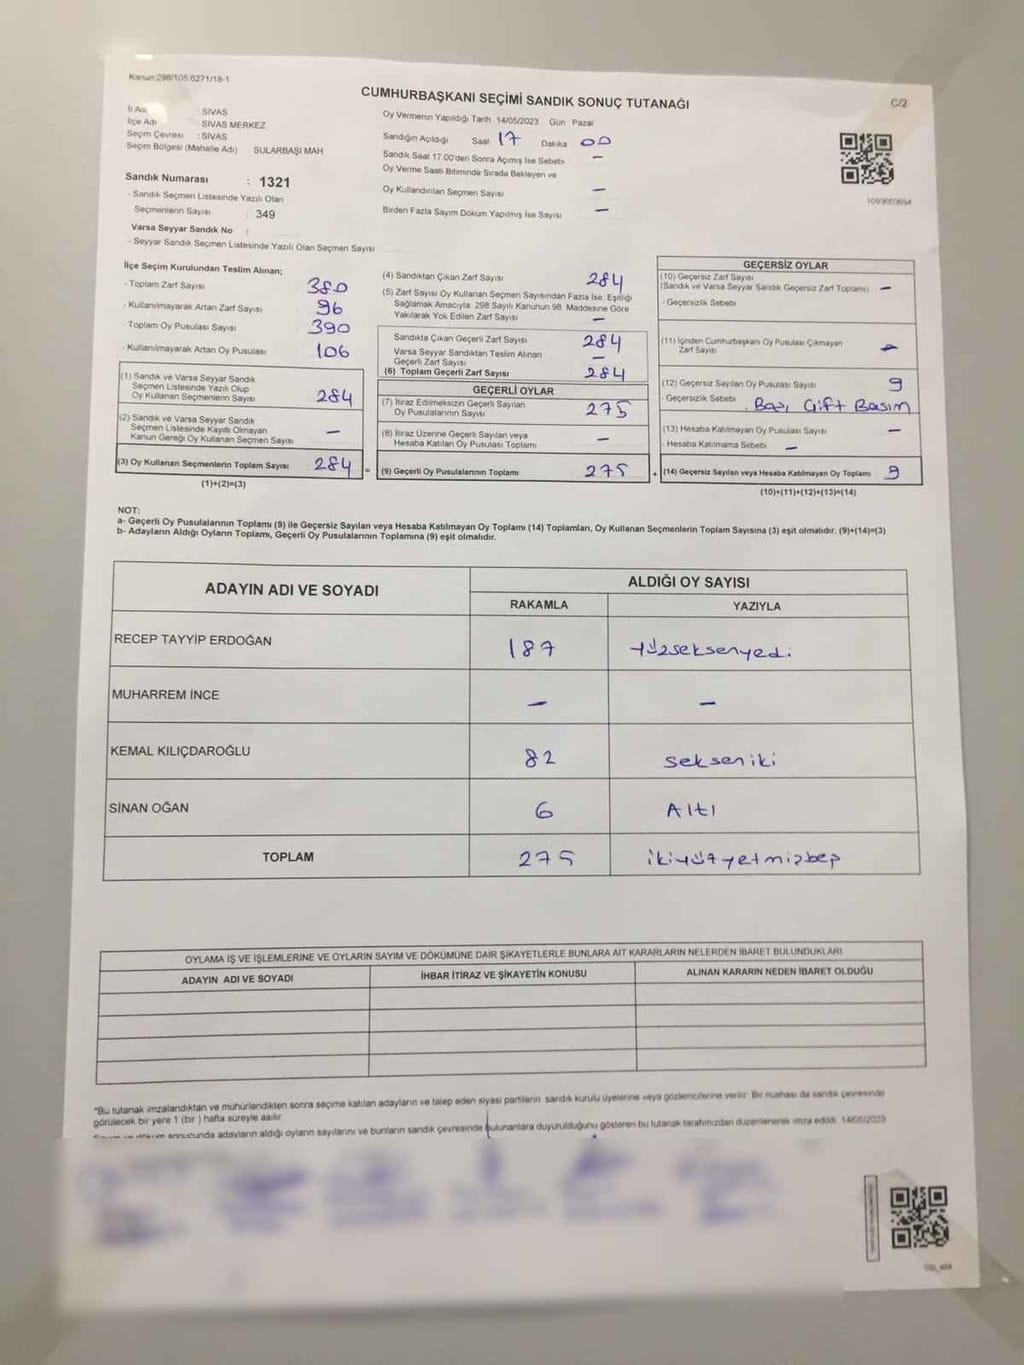 Kanun:298/105 6271/18-1
CUMHURBAŞKANI SEÇİMİ SANDIK SONUÇ TUTANAĞI
C/2
İl Adı SİVAS
İlçe Adı SİVAS MERKEZ
Seçim Çevresi : SİVAS
Seçim Bölgesi (Mahalle Adı) SULARBAŞI MAH
Sandık Numarası : 1321
- Sandık Seçmen Listesinde Yazılı Olan
Seçmenlerin Sayısı : 349
Varsa Seyyar Sandık No :
- Seyyar Sandık Seçmen Listesinde Yazılı Olan Seçmen Sayısı
Oy Vermenin Yapıldığı Tarih 14/05/2023 Gün Pazar
Sandığın Açıldığı Saat 17 Dakika 00
Sandık Saat 17.00'den Sonra Açımış Ise Sebebi —
Oy Verme Saati Bitiminde Sırada Bekleyen ve
Oy Kullandırılan Seçmen Sayısı —
Birden Fazla Sayım Döküm Yapılmış Ise Sayısı —
İlçe Seçim Kurulundan Teslim Alınan;
- Toplam Zarf Sayısı 380
- Kullanılmayarak Artan Zarf Sayısı 96
- Toplam Oy Pusulası Sayısı 390
- Kullanılmayarak Artan Oy Pusulası 106
(1) Sandık ve Varsa Seyyar Sandık
Seçmen Listesinde Yazılı Olup
Oy Kullanan Seçmenlerin Sayısı 284
(2) Sandık ve Varsa Seyyar Sandık
Seçmen Listesinde Kayıtlı Olmayan
Kanun Gereği Oy Kullanan Seçmen Sayısı —
(3) Oy Kullanan Seçmenlerin Toplam Sayısı 284 =
(1)+(2)=(3)
(4) Sandıktan Çıkan Zarf Sayısı 284
(5) Zarf Sayısı Oy Kullanan Seçmen Sayısından Fazla Ise, Eşitliği
Sağlamak Amacıyla, 298 Sayılı Kanunun 98. Maddesine Göre
Yakılarak Yok Edilen Zarf Sayısı —
Sandıkta Çıkan Geçerli Zarf Sayısı 284
Varsa Seyyar Sandıktan Teslim Alınan
Geçerli Zarf Sayısı —
(6) Toplam Geçerli Zarf Sayısı 284
GEÇERLİ OYLAR
(7) İtiraz Edilmeksizin Geçerli Sayılan
Oy Pusulalarının Sayısı 275
(8) İtiraz Üzerine Geçerli Sayılan veya
Hesaba Katılan Oy Pusulası Toplamı —
(9) Geçerli Oy Pusulalarının Toplamı 275 +
GEÇERSİZ OYLAR
(10) Geçersiz Zarf Sayısı
(Sandık ve Varsa Seyyar Sandık Geçersiz Zarf Toplamı) —
- Geçersizlik Sebebi
(11) İçinden Cumhurbaşkanı Oy Pusulası Çıkmayan
Zarf Sayısı —
(12) Geçersiz Sayılan Oy Pusulası Sayısı 9
- Geçersizlik Sebebi Boş, Çift Basım
(13) Hesaba Katılmayan Oy Pusulası Sayısı —
- Hesaba Katılmama Sebebi —
(14) Geçersiz Sayılan veya Hesaba Katılmayan Oy Toplamı 9
(10)+(11)+(12)+(13)=(14)
NOT:
a- Geçerli Oy Pusulalarının Toplamı (9) ile Geçersiz Sayılan veya Hesaba Katılmayan Oy Toplamı (14) Toplamları, Oy Kullanan Seçmenlerin Toplam Sayısına (3) eşit olmalıdır. (9)+(14)=(3)
b- Adayların Aldığı Oyların Toplamı, Geçerli Oy Pusulalarının Toplamına (9) eşit olmalıdır.
ADAYIN ADI VE SOYADI
ALDIĞI OY SAYISI
RAKAMLA YAZIYLA
RECEP TAYYİP ERDOĞAN 187 yüzseksenyedi
MUHARREM İNCE — —
KEMAL KILIÇDAROĞLU 82 seksen iki
SİNAN OĞAN 6 Altı
TOPLAM 275 ikiyüzyetmişbeş
OYLAMA İŞ VE İŞLEMLERİNE VE OYLARIN SAYIM VE DÖKÜMÜNE DAİR ŞİKAYETLERLE BUNLARA AİT KARARLARIN NELERDEN İBARET BULUNDUKLARI
ADAYIN ADI VE SOYADI İHBAR İTİRAZ VE ŞİKAYETİN KONUSU ALINAN KARARIN NEDEN İBARET OLDUĞU
*Bu tutanak imzalandıktan ve mühürlendikten sonra seçime katılan adayların ve talep eden siyasi partilerin sandık kurulu üyelerine veya gözlemcilerine verilir. Bir nushası da sandık çevresinde
görülecek bir yere 1 (bir ) hafta süreyle asılır.
döküm sonucunda adayların aldığı oyların sayılarını ve bunların sandık çevresinde bulunanlara duyurulduğunu gösteren bu tutanak tarafımızdan düzenlenerek imza edildi. 14/05/2023